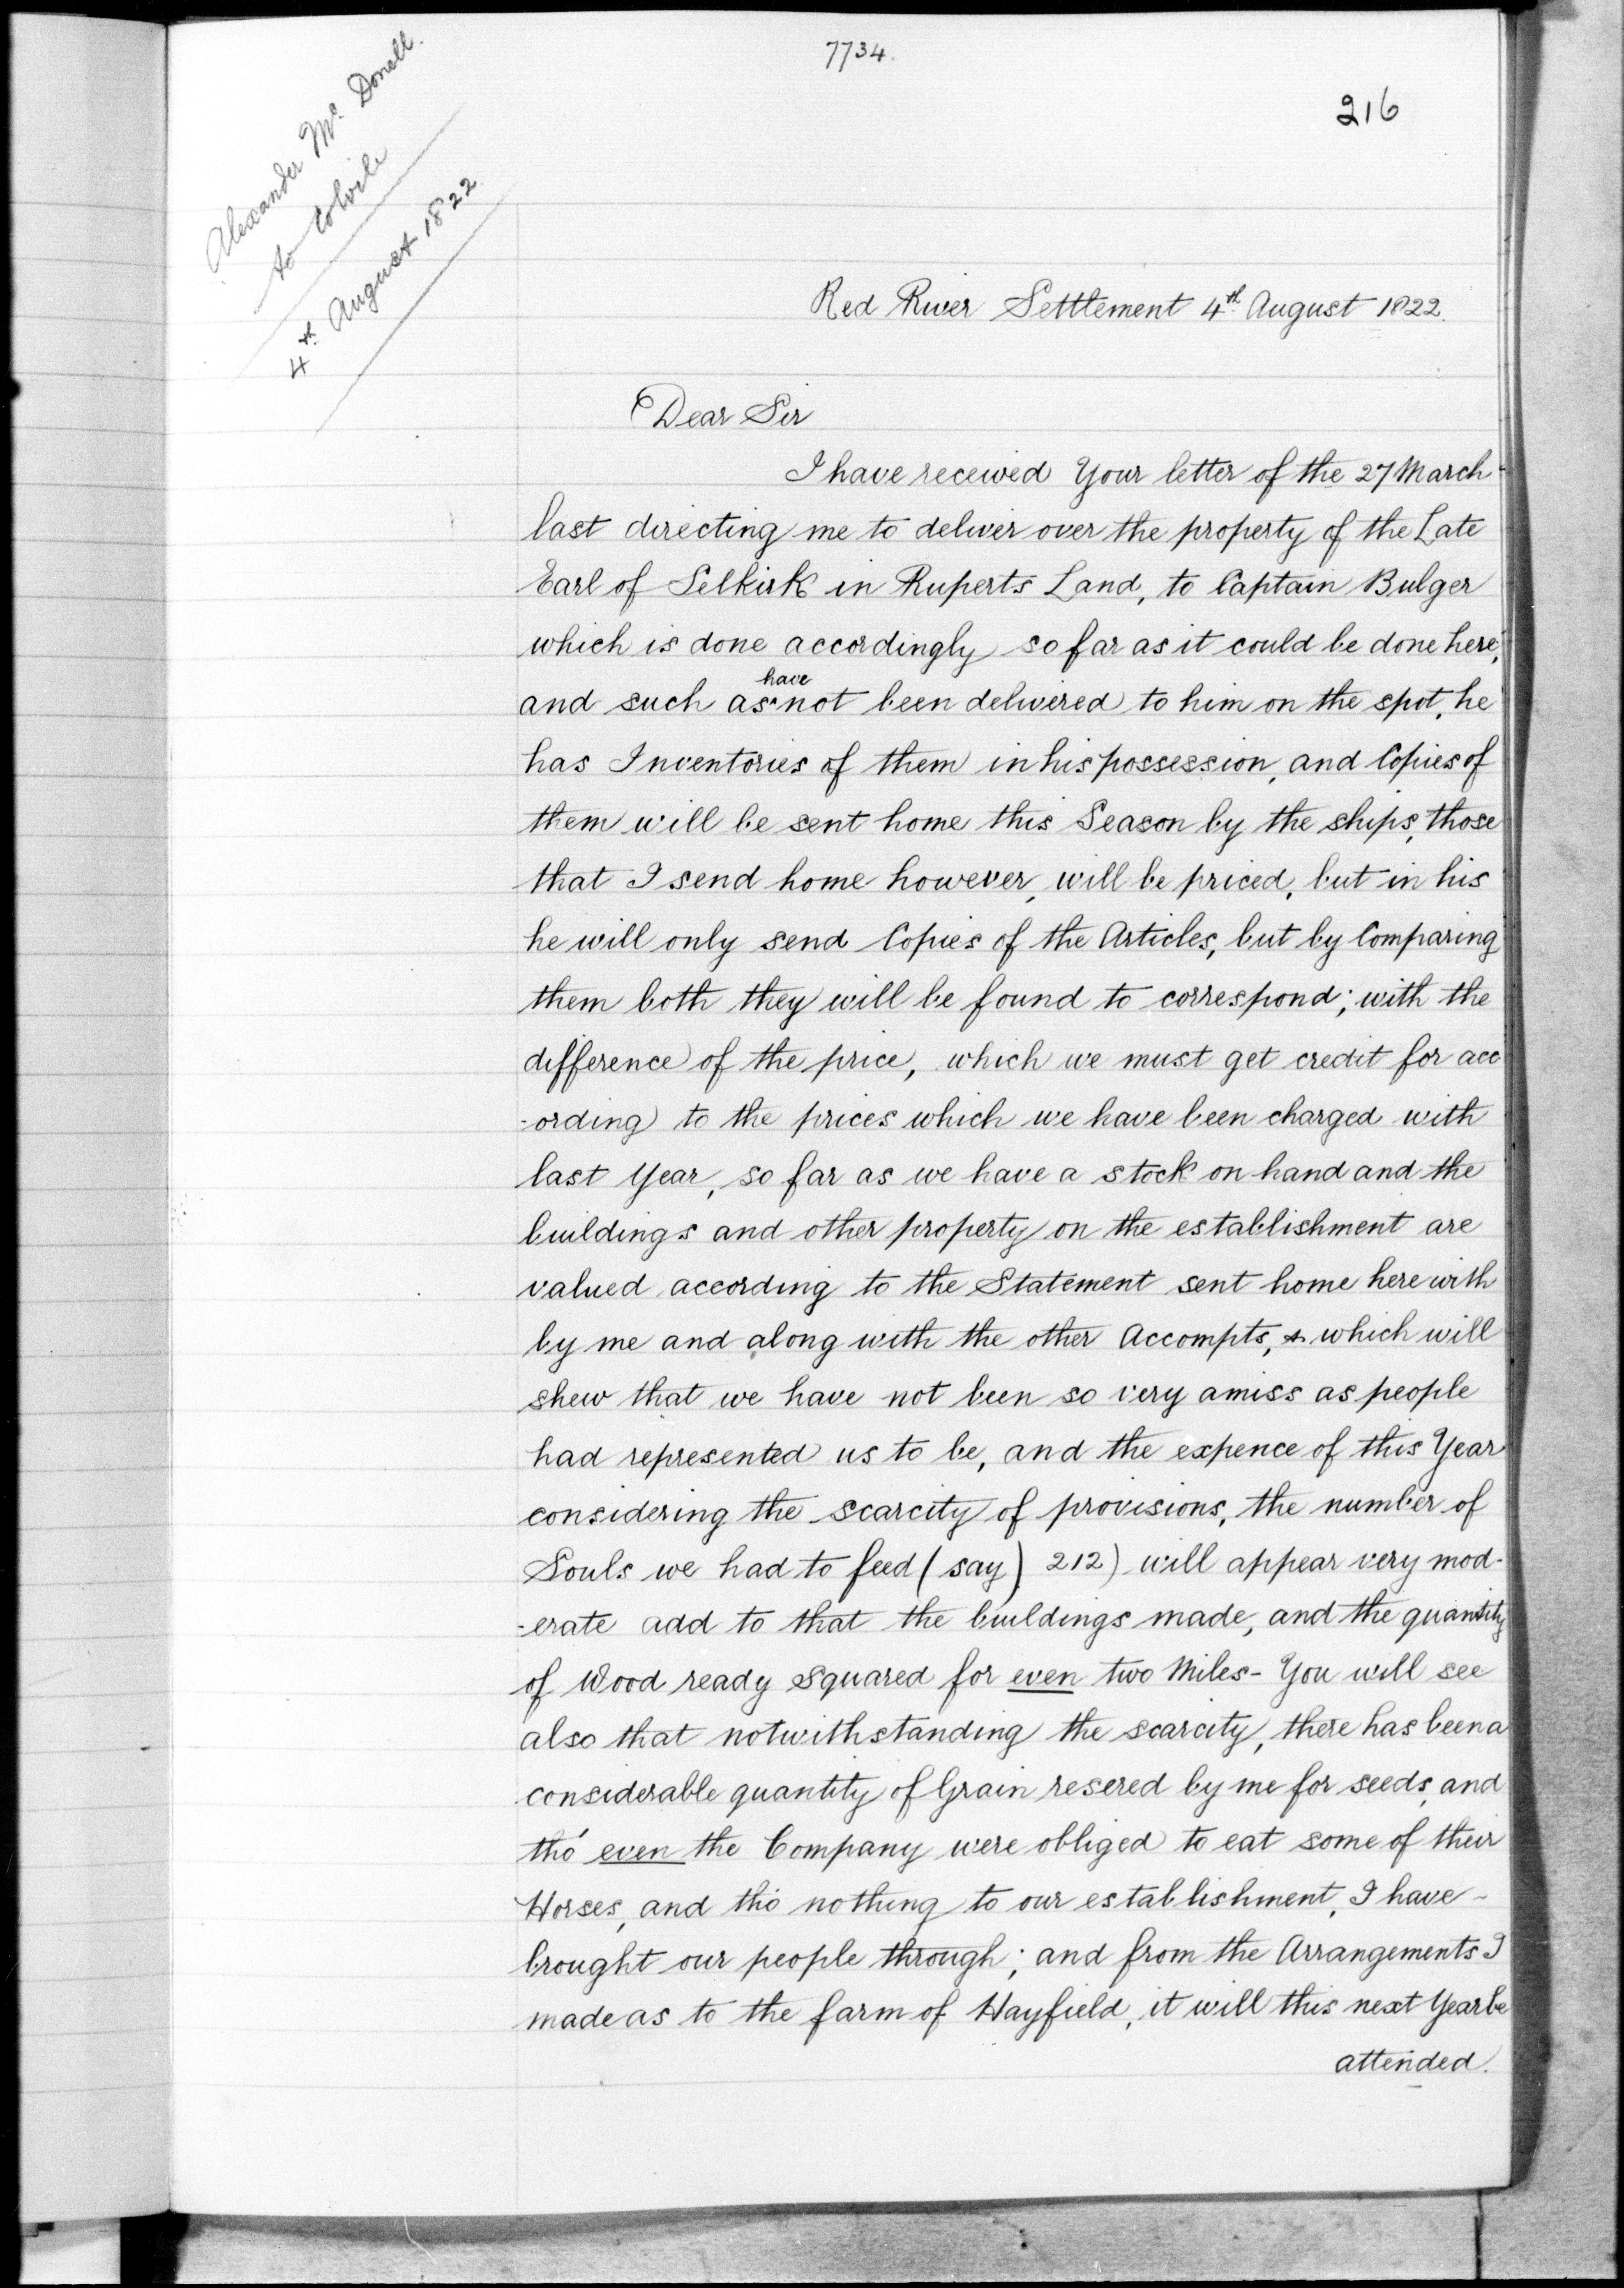 7734.
216
Alexander Mc. Donell.
to Colvile
4th. August 1822.
Red River Settlement 4th August 1822.
Dear Sir
I have received Your letter of the 27 March
last directing me to deliver over the property of the Late
Earl of Selkirk in Ruperts Land, to Captain Bulger
which is done accordingly so far as it could be done here,
have
and such as^not been delivered to him on the spot, he
has Inventories of them in his possession, and Copies of
them will be sent home this Season by the ships, those
that I send home however, will be priced, but in his
he will only send Copies of the Articles, but by Comparing
them both they will be found to correspond; with the
difference of the price, which we must get credit for acc
-ording to the prices which we have been charged with
last Year, so far as we have a stock on hand and the
buildings and other property on the establishment are
valued according to the Statement sent home here with
by me and along with the other Accompts, & which will
shew that we have not been so very amiss as people
had represented us to be, and the expence of this Year
considering the scarcity of provisions, the number of
Souls we had to feed (say) 212) will appear very mod-
-erate add to that the buildings made, and the quantity
of Wood ready squared for even two Miles - You will see
also that notwithstanding the scarcity, there has been a
considerable quantity of Grain resered by me for seeds, and
tho' even the Company were obliged to eat some of their
Horses, and tho' nothing to our establishment, I have -
brought our people through; and from the Arrangements I
made as to the farm of Hayfield, it will this next Year be
attended.